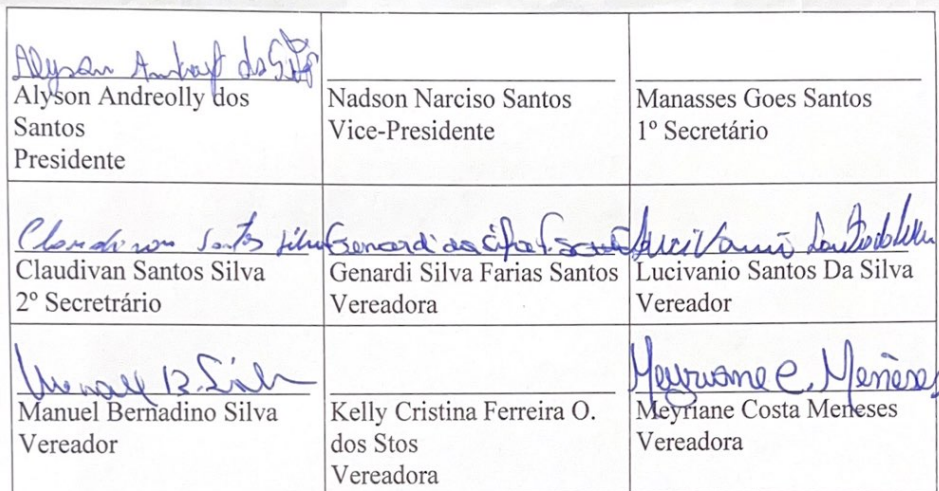 Alyson Andreolly dos
Santos
Presidente
Nadson Narciso Santos
Vice-Presidente
Manasses Goes Santos
1º Secretário
Claudivan Santos Silva
Claudivan Santos Silva
2º Secretrário
Genardi Silva Farias Santos
Vereadora
Lucivanio Santos Da Silva
Vereador
Manuel B. Silva
Manuel Bernadino Silva
Vereador
Kelly Cristina Ferreira O.
dos Stos
Vereadora
Meyriane C. Meneses
Meyriane Costa Meneses
Vereadora